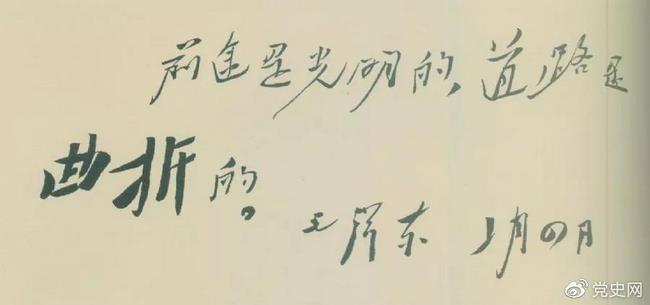 前途是光明的，道路是
曲折的。
毛泽东 1月四日
@党史网